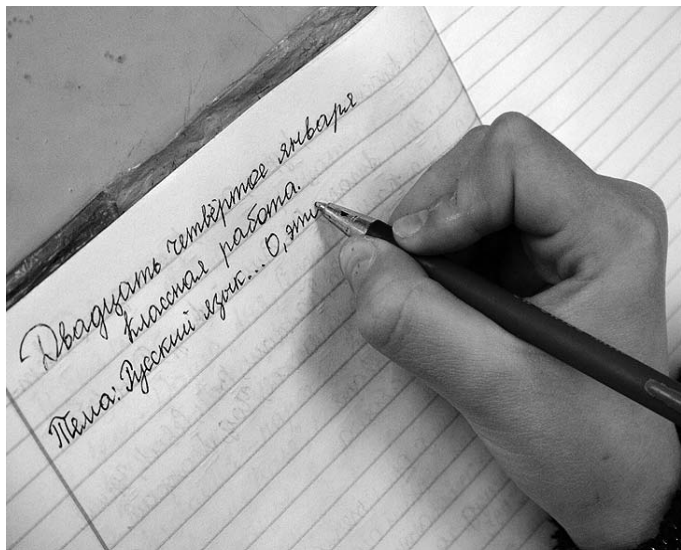 Двадцать четвёртое января
Классная работа.
Тема: Русский язык... О, это